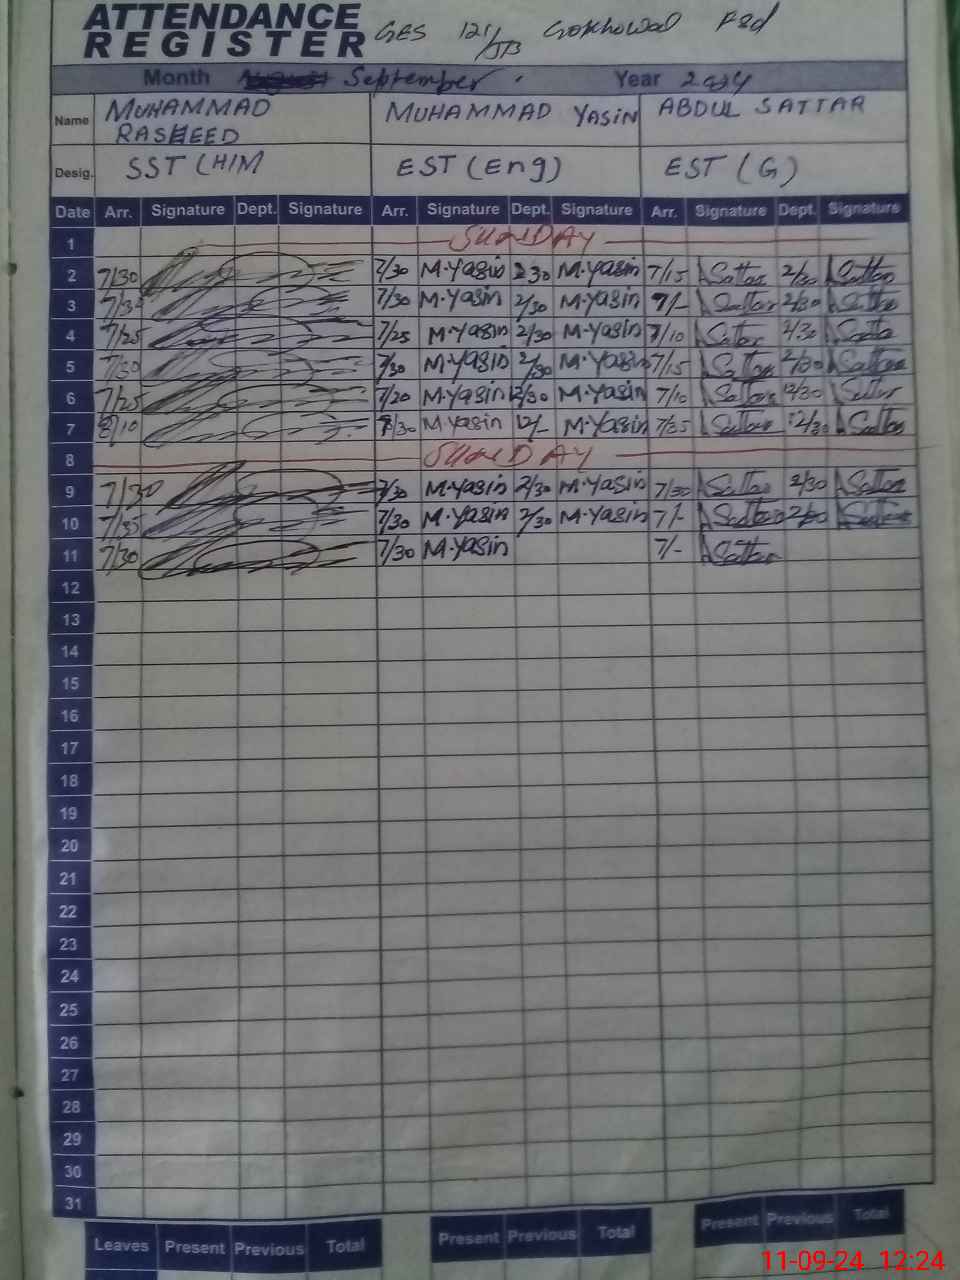 ATTENDANCE
REGISTER GES 121/JB Gokhowal Fsd
Month September Year 2024
Name MUHAMMAD RASHEED MUHAMMAD YASIN ABDUL SATTAR
Desig. SST (HIM EST (Eng) EST (G)
Date Arr. Signature Dept. Signature Arr. Signature Dept. Signature Arr. Signature Dept. Signature
1 SUNDAY
2 7/30 7/30 M.Yasin 2 30 M.Yasin 7/15 Sattar 2/30 Sattar
3 7/30 M.Yasin 2/30 M.Yasin 7/- Sattar 2/30 Sattar
4 7/25 7/25 M.Yasin 2/30 M.Yasin 7/10 Sattar 2/30 Sattar
5 7/30 7/30 M.Yasin 2/30 M.Yasin 7/15 Sattar 2/30 Sattar
6 7/25 7/20 M.Yasin 12/30 M.Yasin 7/10 Sattar 12/30 Sattar
7 8/10 M.Yasin 12/- M.Yasin 7/35 Sattar 12/30 Sattar
8 SUNDAY
9 7/30 7/30 M.Yasin 2/30 M.Yasin 7/30 Sattar 2/30 Sattar
10 7/35 7/30 M.Yasin 2/30 M.Yasin 7/- Sattar 2/30 Sattar
11 7/30 7/30 M.Yasin 7/- Sattar
12
13
14
15
16
17
18
19
20
21
22
23
24
25
26
27
28
29
30
31
Leaves Present Previous Total Present Previous Total Present Previous Total
11-09-24 12:24